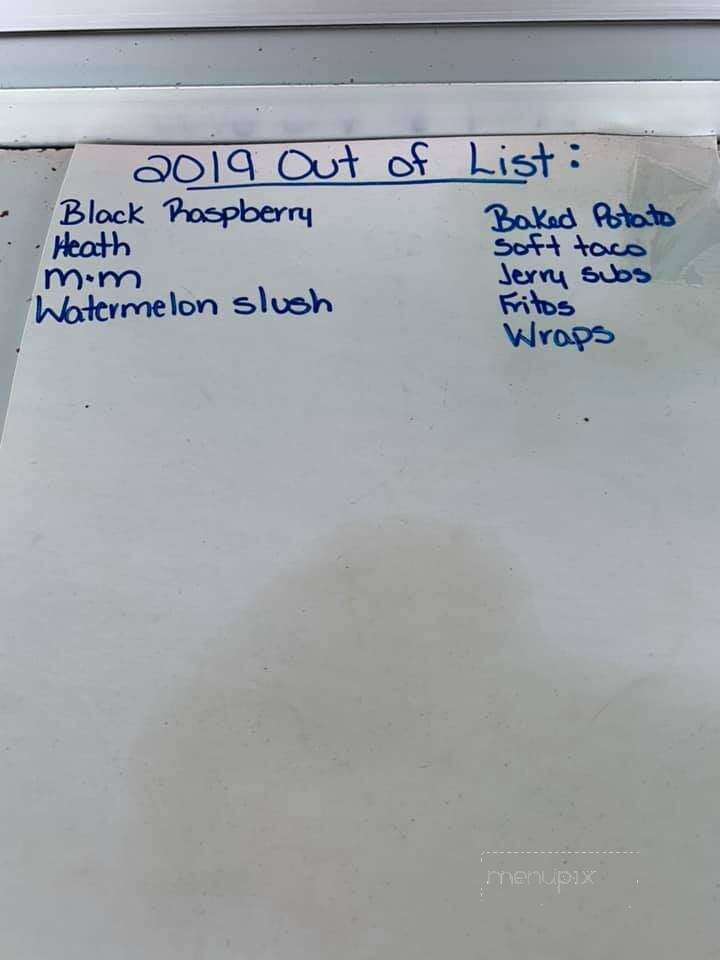 2019 Out of List:
Black Raspberry
Heath
m·m
Watermelon slush
Baked Potato
Soft taco
Jerry subs
Fritos
Wraps
menupix